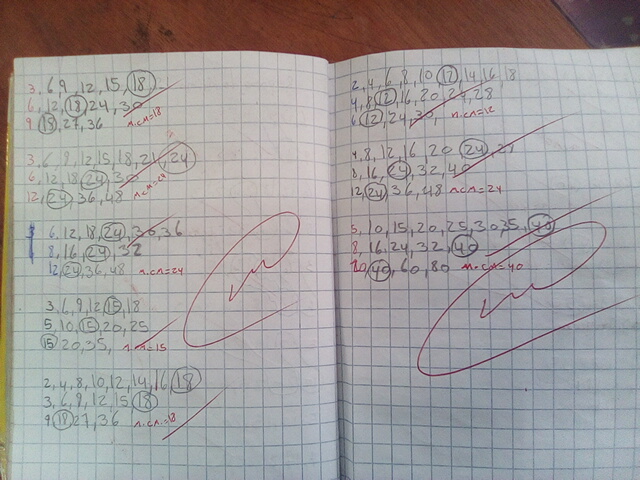 3, 6, 9, 12, 15, 18
6, 12, 18, 24, 30
9, 18, 27, 36 m.c.m=18
3, 6, 9, 12, 15, 18, 21, 24
6, 12, 18, 24, 30
12, 24, 36, 48 m.c.m=24
6, 12, 18, 24, 30, 36
8, 16, 24, 32
12, 24, 36, 48 m.c.m=24
3, 6, 9, 12, 15, 18
5, 10, 15, 20, 25
15, 20, 35, m.c.m=15
2, 4, 8, 10, 12, 14, 16, 18
3, 6, 9, 12, 15, 18
9, 18, 27, 36 m.c.m.=18
2, 4, 6, 8, 10, 12, 14, 16, 18
4, 8, 12, 16, 20, 24, 28
6, 12, 24, 30, m.c.m=12
4, 8, 12, 16, 20, 24, 27
8, 16, 24, 32, 40
12, 24, 36, 48 m.c.m=24
5, 10, 15, 20, 25, 30, 35, 40
8, 16, 24, 32, 40
20, 40, 60, 80 m.c.m=40